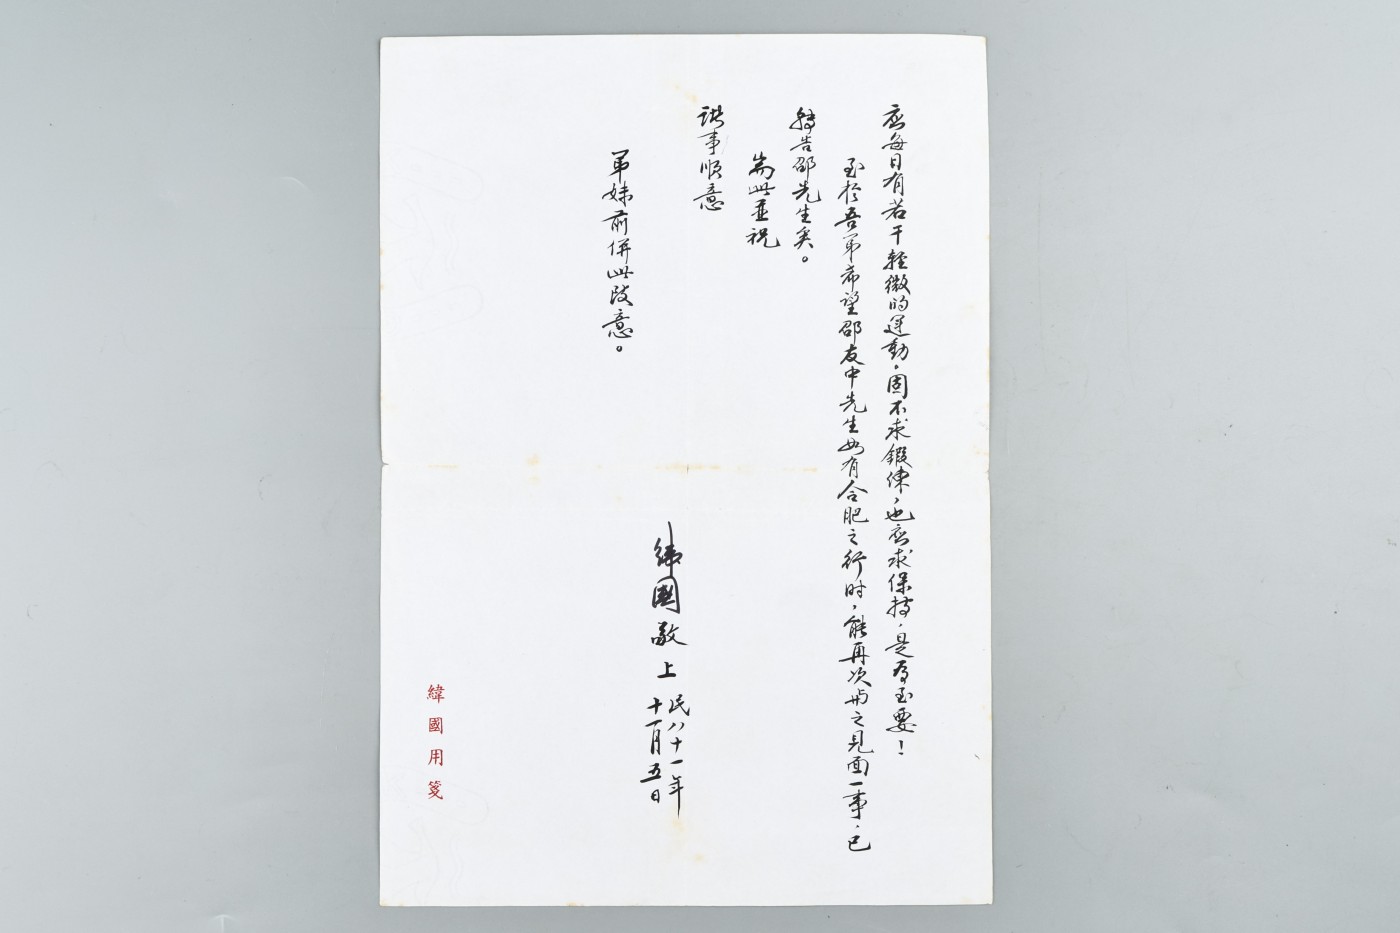 应每日有若干輕微的運動。固不求鍛倲，也应求保持，是為至要！
至於吾弟希望邵友中先生如有合肥之行时，能再次與之見面一事，已
轉告邵先生矣。
耑此並祝
諸事順意
弟妹前併此致意。
緯國敬上
民八十一年
十一月五日
緯國用箋